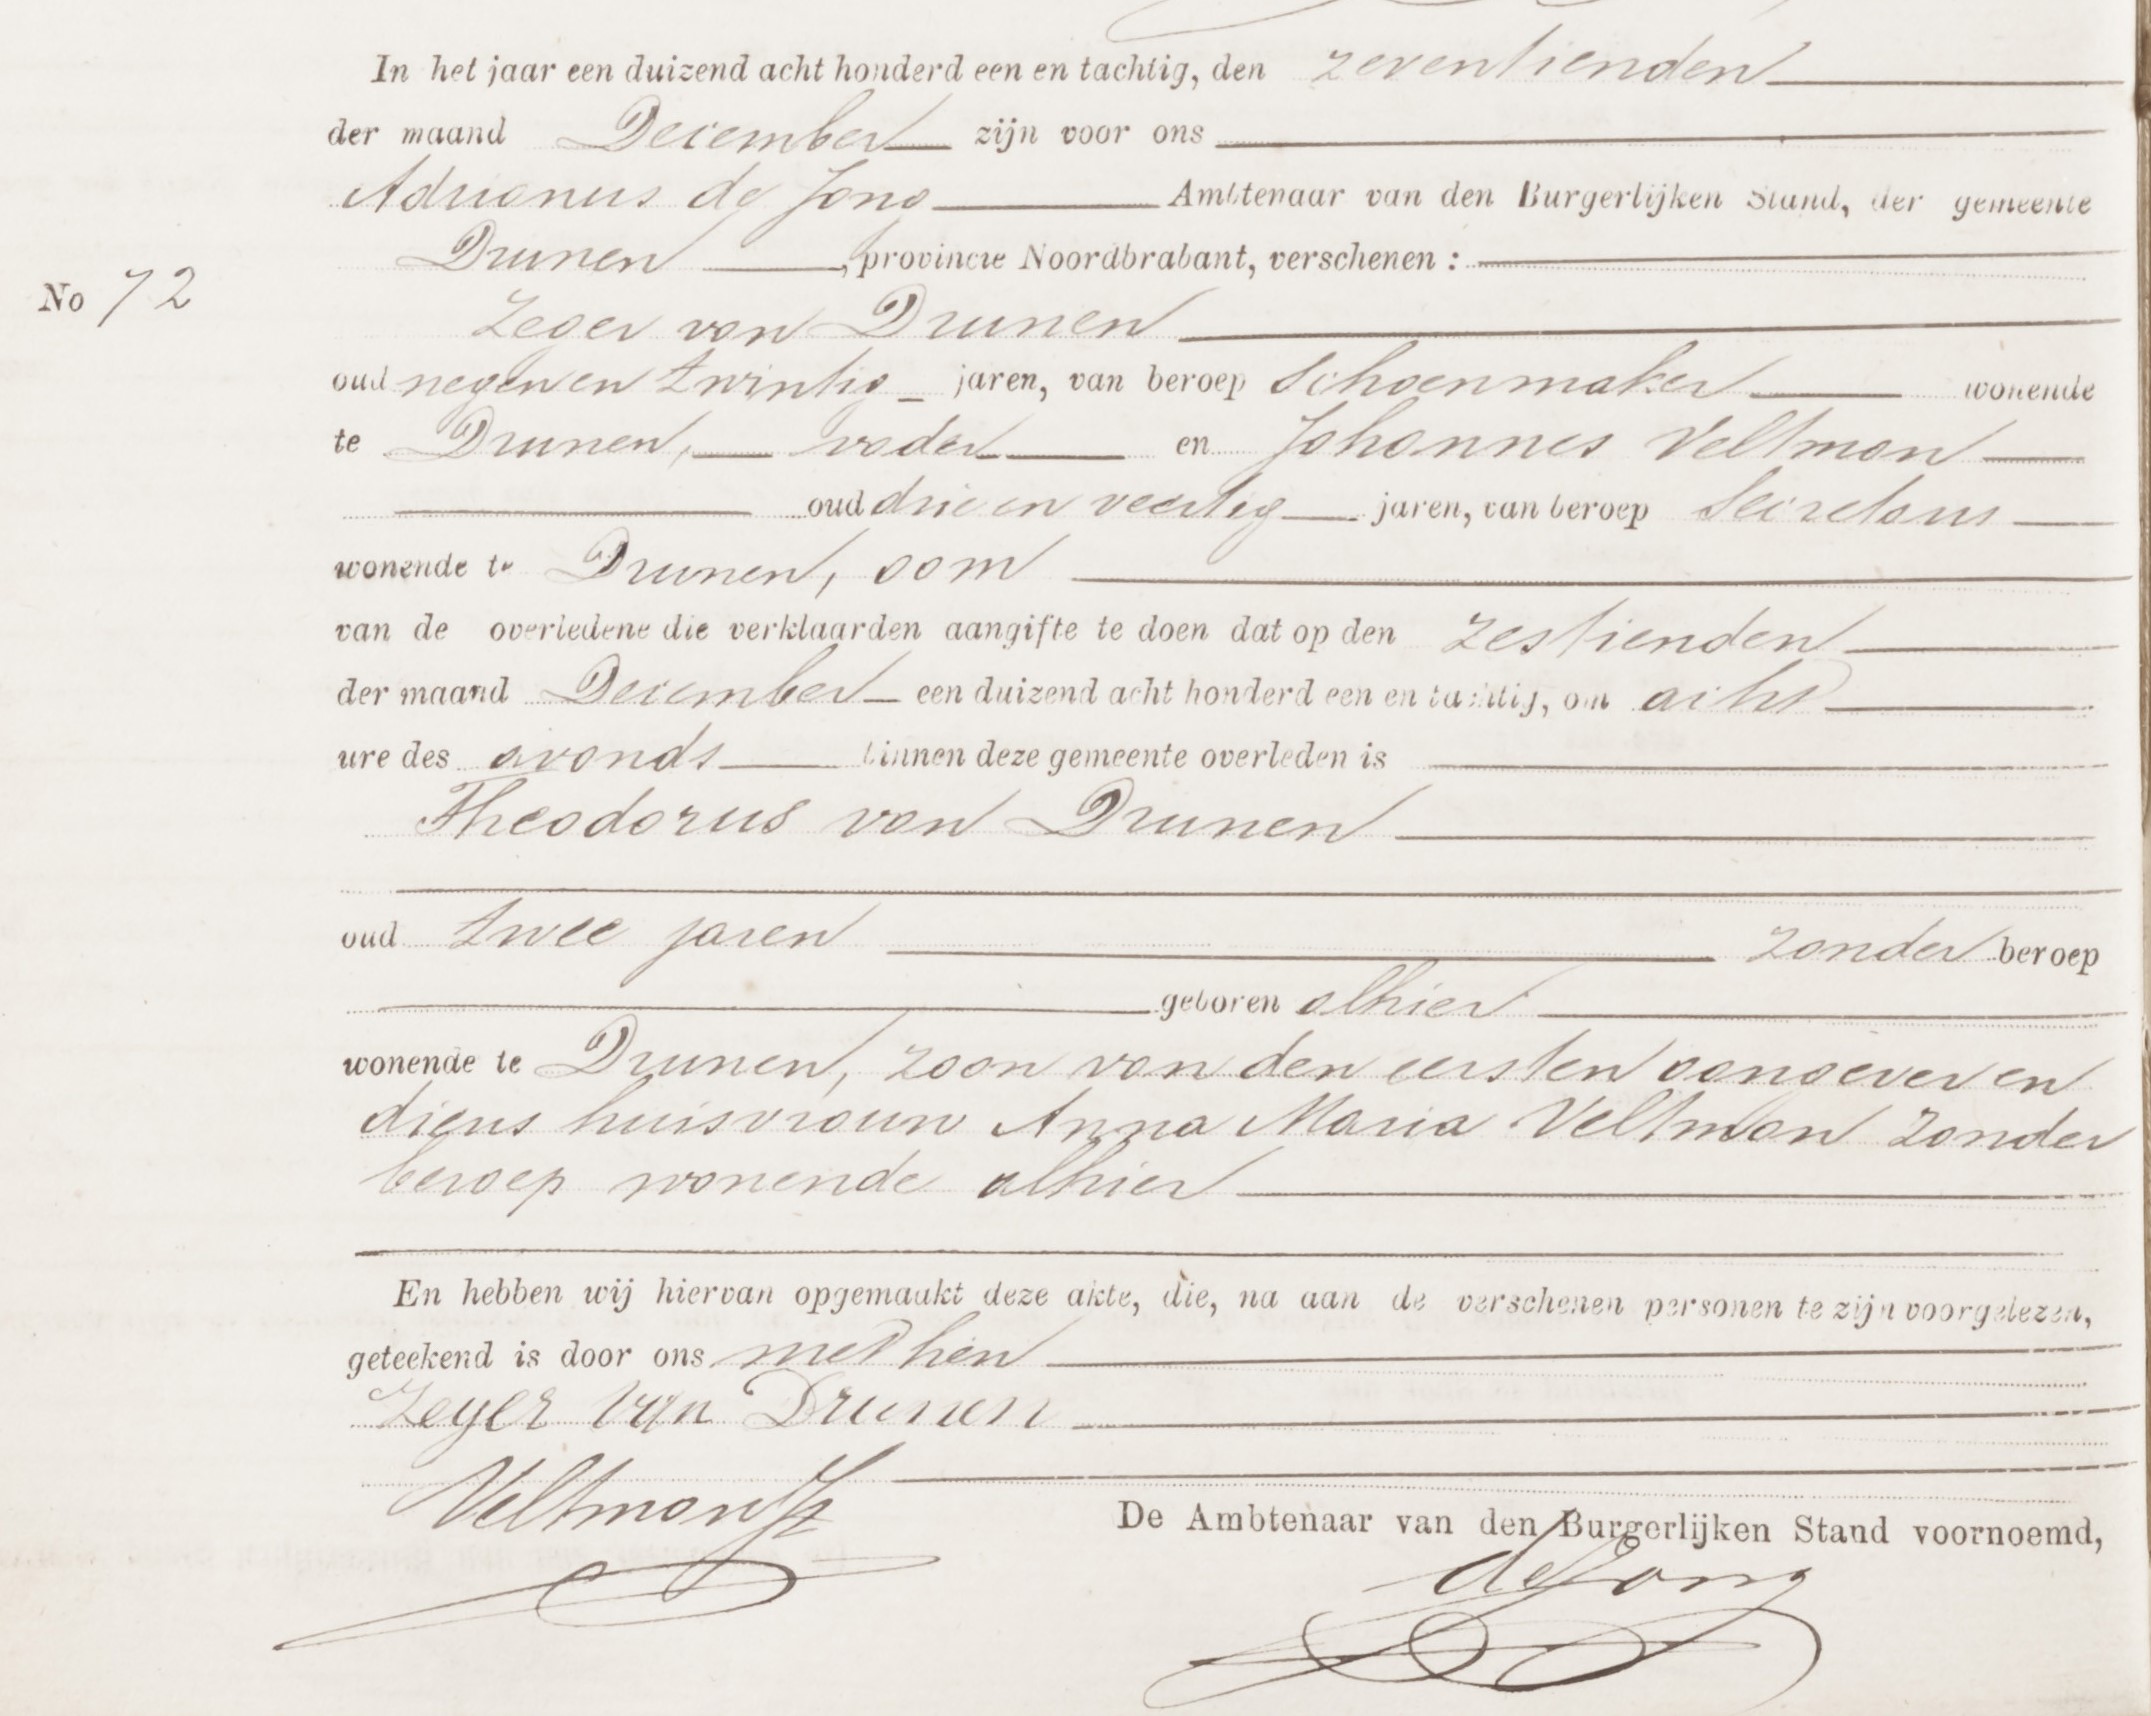 In het jaar een duizend acht honderd een en tachtig, den zeventienden
der maand December zijn voor ons
Adrianus de Jong Ambtenaar van den Burgerlijken Stand, der gemeente
Drunen, provincie Noordbrabant, verschenen :
No 72
Zeger van Drunen
oud negen en twintig jaren, van beroep Schoenmaker wonende
te Drunen, vader en Johannes Veltman
oud drie en veertig jaren, van beroep Secretaris
wonende te Drunen, oom
van de overledene die verklaarden aangifte te doen dat op den zestienden
der maand December een duizend acht honderd een en tachtig, om acht
ure des avonds binnen deze gemeente overleden is
Theodorus van Drunen
oud twee jaren zonder beroep
geboren alhier
wonende te Drunen, zoon van den eersten aangever en
diens huisvrouw Anna Maria Veltman zonder
beroep wonende alhier
En hebben wij hiervan opgemaakt deze akte, die, na aan de verschenen personen te zijn voorgelezen,
geteekend is door ons met hen
Zeger van Drunen
Veltman Jz
De Ambtenaar van den Burgerlijken Stand voornoemd,
de Jong